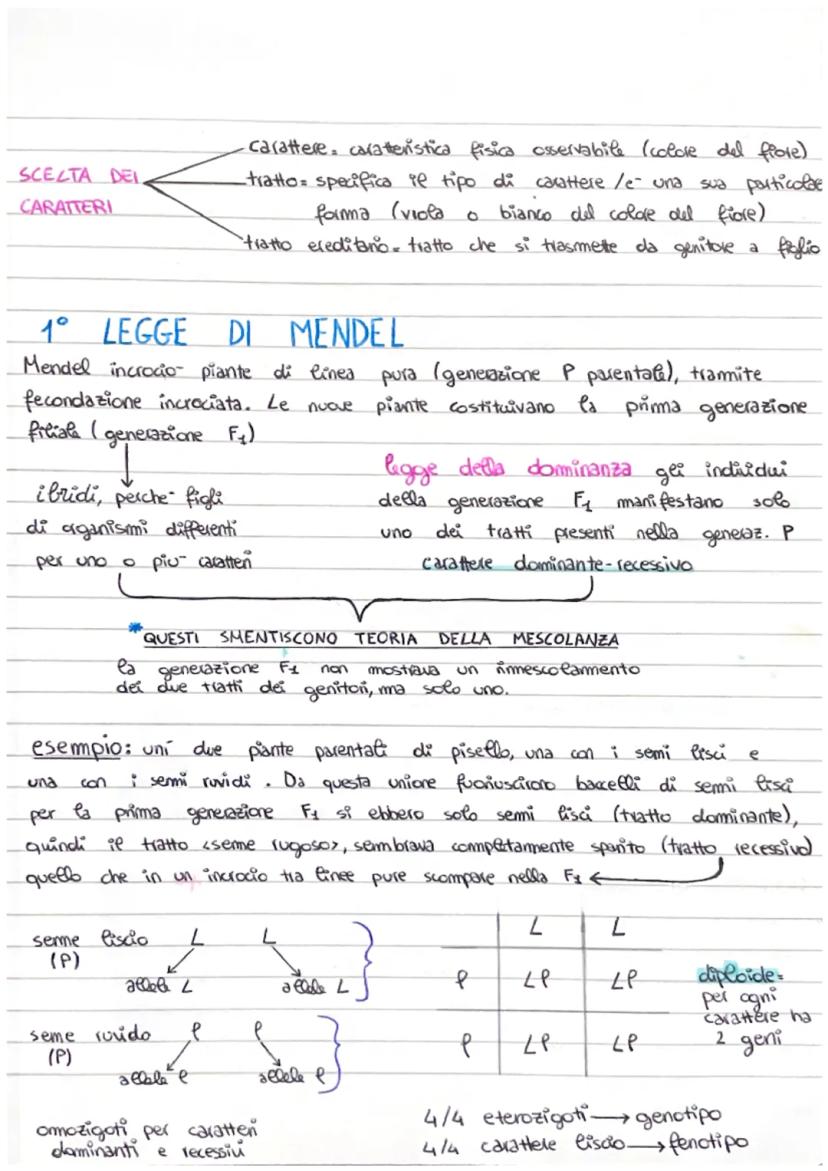 carattere = caratteristica fisica osservabile (colore del fiore)
SCELTA DEI
CARATTERI
tratto = specifica il tipo di carattere / e- una sua particolare
forma (viola o bianco del colore del fiore)
tratto ereditario = tratto che si trasmette da genitore a figlio
1° LEGGE DI MENDEL
Mendel incrocio- piante di linea pura (generazione P parentale), tramite
fecondazione incrociata. Le nuove piante costituivano la prima generazione
filiale (generazione F1)
ibridi, perche- figli
di organismi differenti
per uno o piu- caratteri
legge della dominanza gli individui
della generazione F1 manifestano solo
uno dei tratti presenti nella generaz. P
carattere dominante-recessivo
* QUESTI SMENTISCONO TEORIA DELLA MESCOLANZA
la generazione F1 non mostrava un rimescolamento
dei due tratti dei genitori, ma solo uno.
esempio: uni due piante parentali di pisello, una con i semi lisci e
una con i semi ruvidi. Da questa unione fuoriuscirono baccelli di semi lisci
per la prima generazione F1 si ebbero solo semi lisci (tratto dominante),
quindi il tratto <seme rugoso>, sembrava completamente sparito (tratto recessivo)
quello che in un incrocio tra linee pure scompare nella F1
seme liscio L L
(P)
allele L allele L
seme ruvido l l
(P)
allele l allele l
omozigoti per caratteri
dominanti e recessivi
L L
l Ll Ll
l Ll Ll
diploide =
per ogni
carattere ha
2 geni
4/4 eterozigoti → genotipo
4/4 carattere liscio → fenotipo